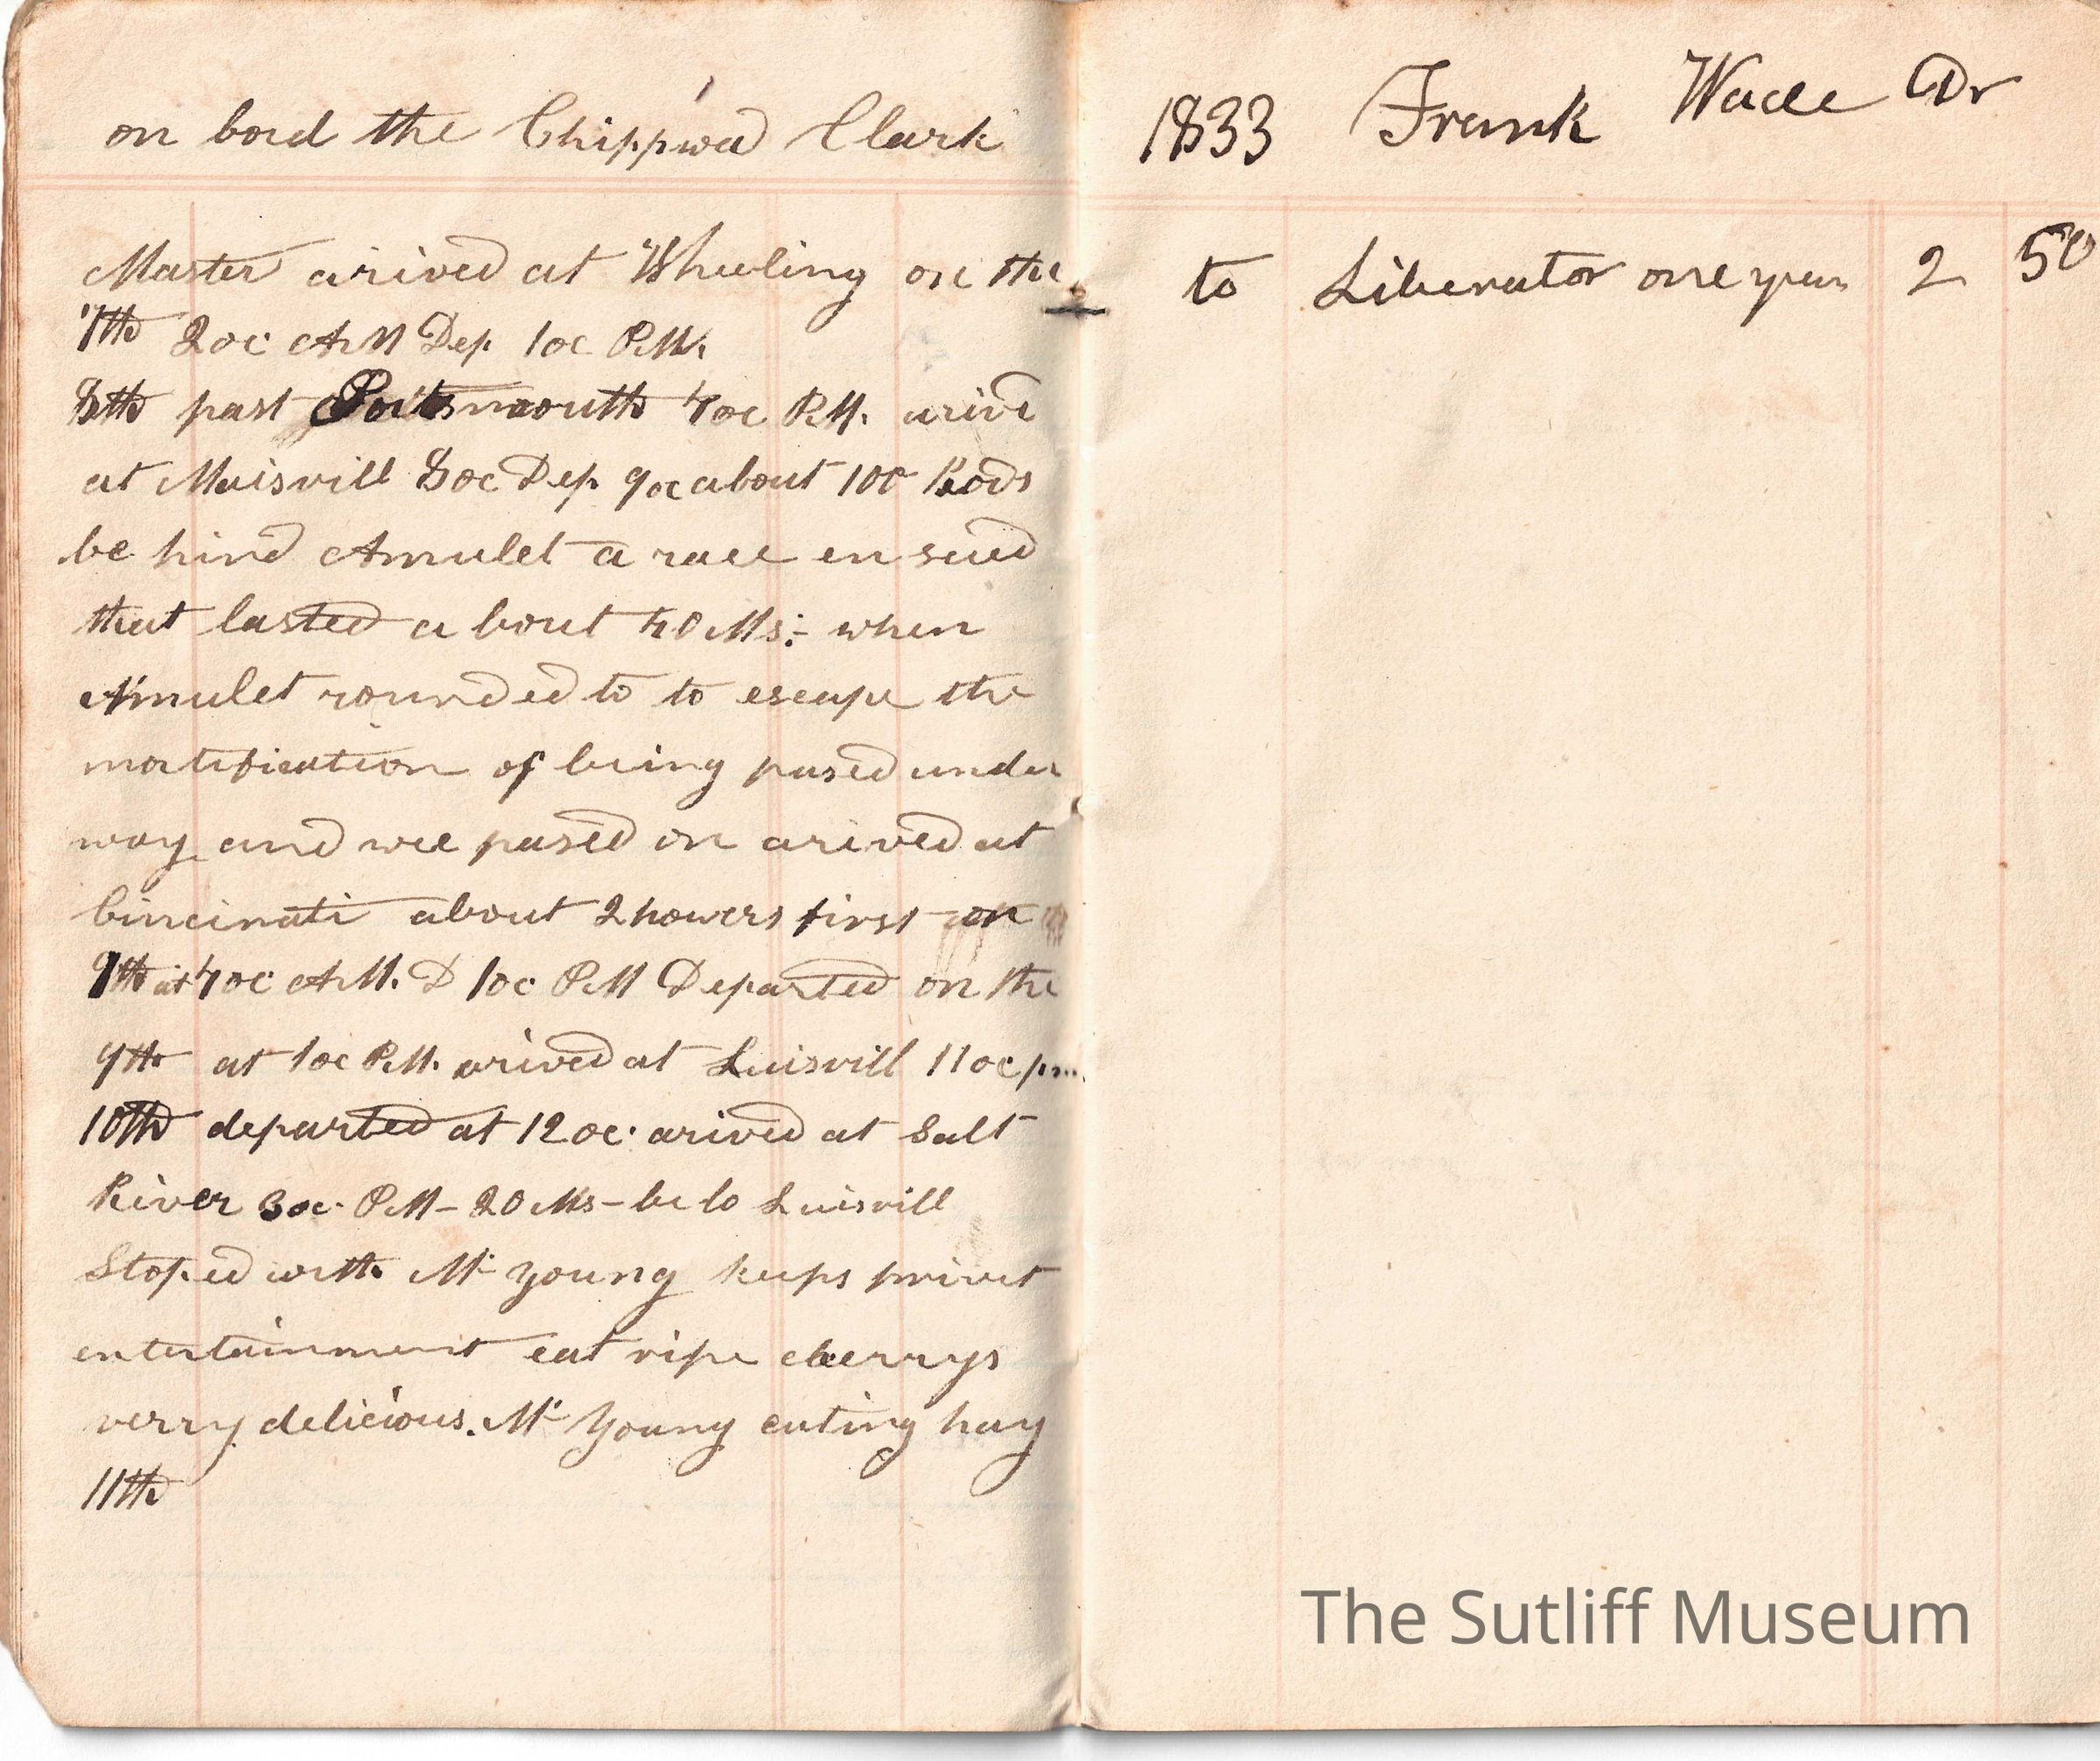 on bord the Chippwa Clark
Master arived at Wheeling on the
7th 2 oc AM Dep 1 oc PM.
8th past Portsmouth 4 oc PM. arive
at Maisvill 8 oc Dep 9 oc about 100 Rods
be hind Amulet a race en sued
that lasted a bout 40 Ms:- when
Amulet rounded to to escape the
mortification of being pased under
way and wee pased on arived at
Cincinati about 2 howers first on
9th at 4 oc AM. D 1 oc PM Departed on the
9th at 1 oc PM. arived at Luisvill 11 oc pm
10th departed at 12 oc. arived at Salt
River 3 oc. PM - 20 Ms - be lo Luisvill
Stoped with Mr Young keeps privet
entertainment eat ripe cherrys
verry delicious. Mr Young cuting hay
11th
1833 Frank Wade Dr
to Liberator one year 2 50
The Sutliff Museum